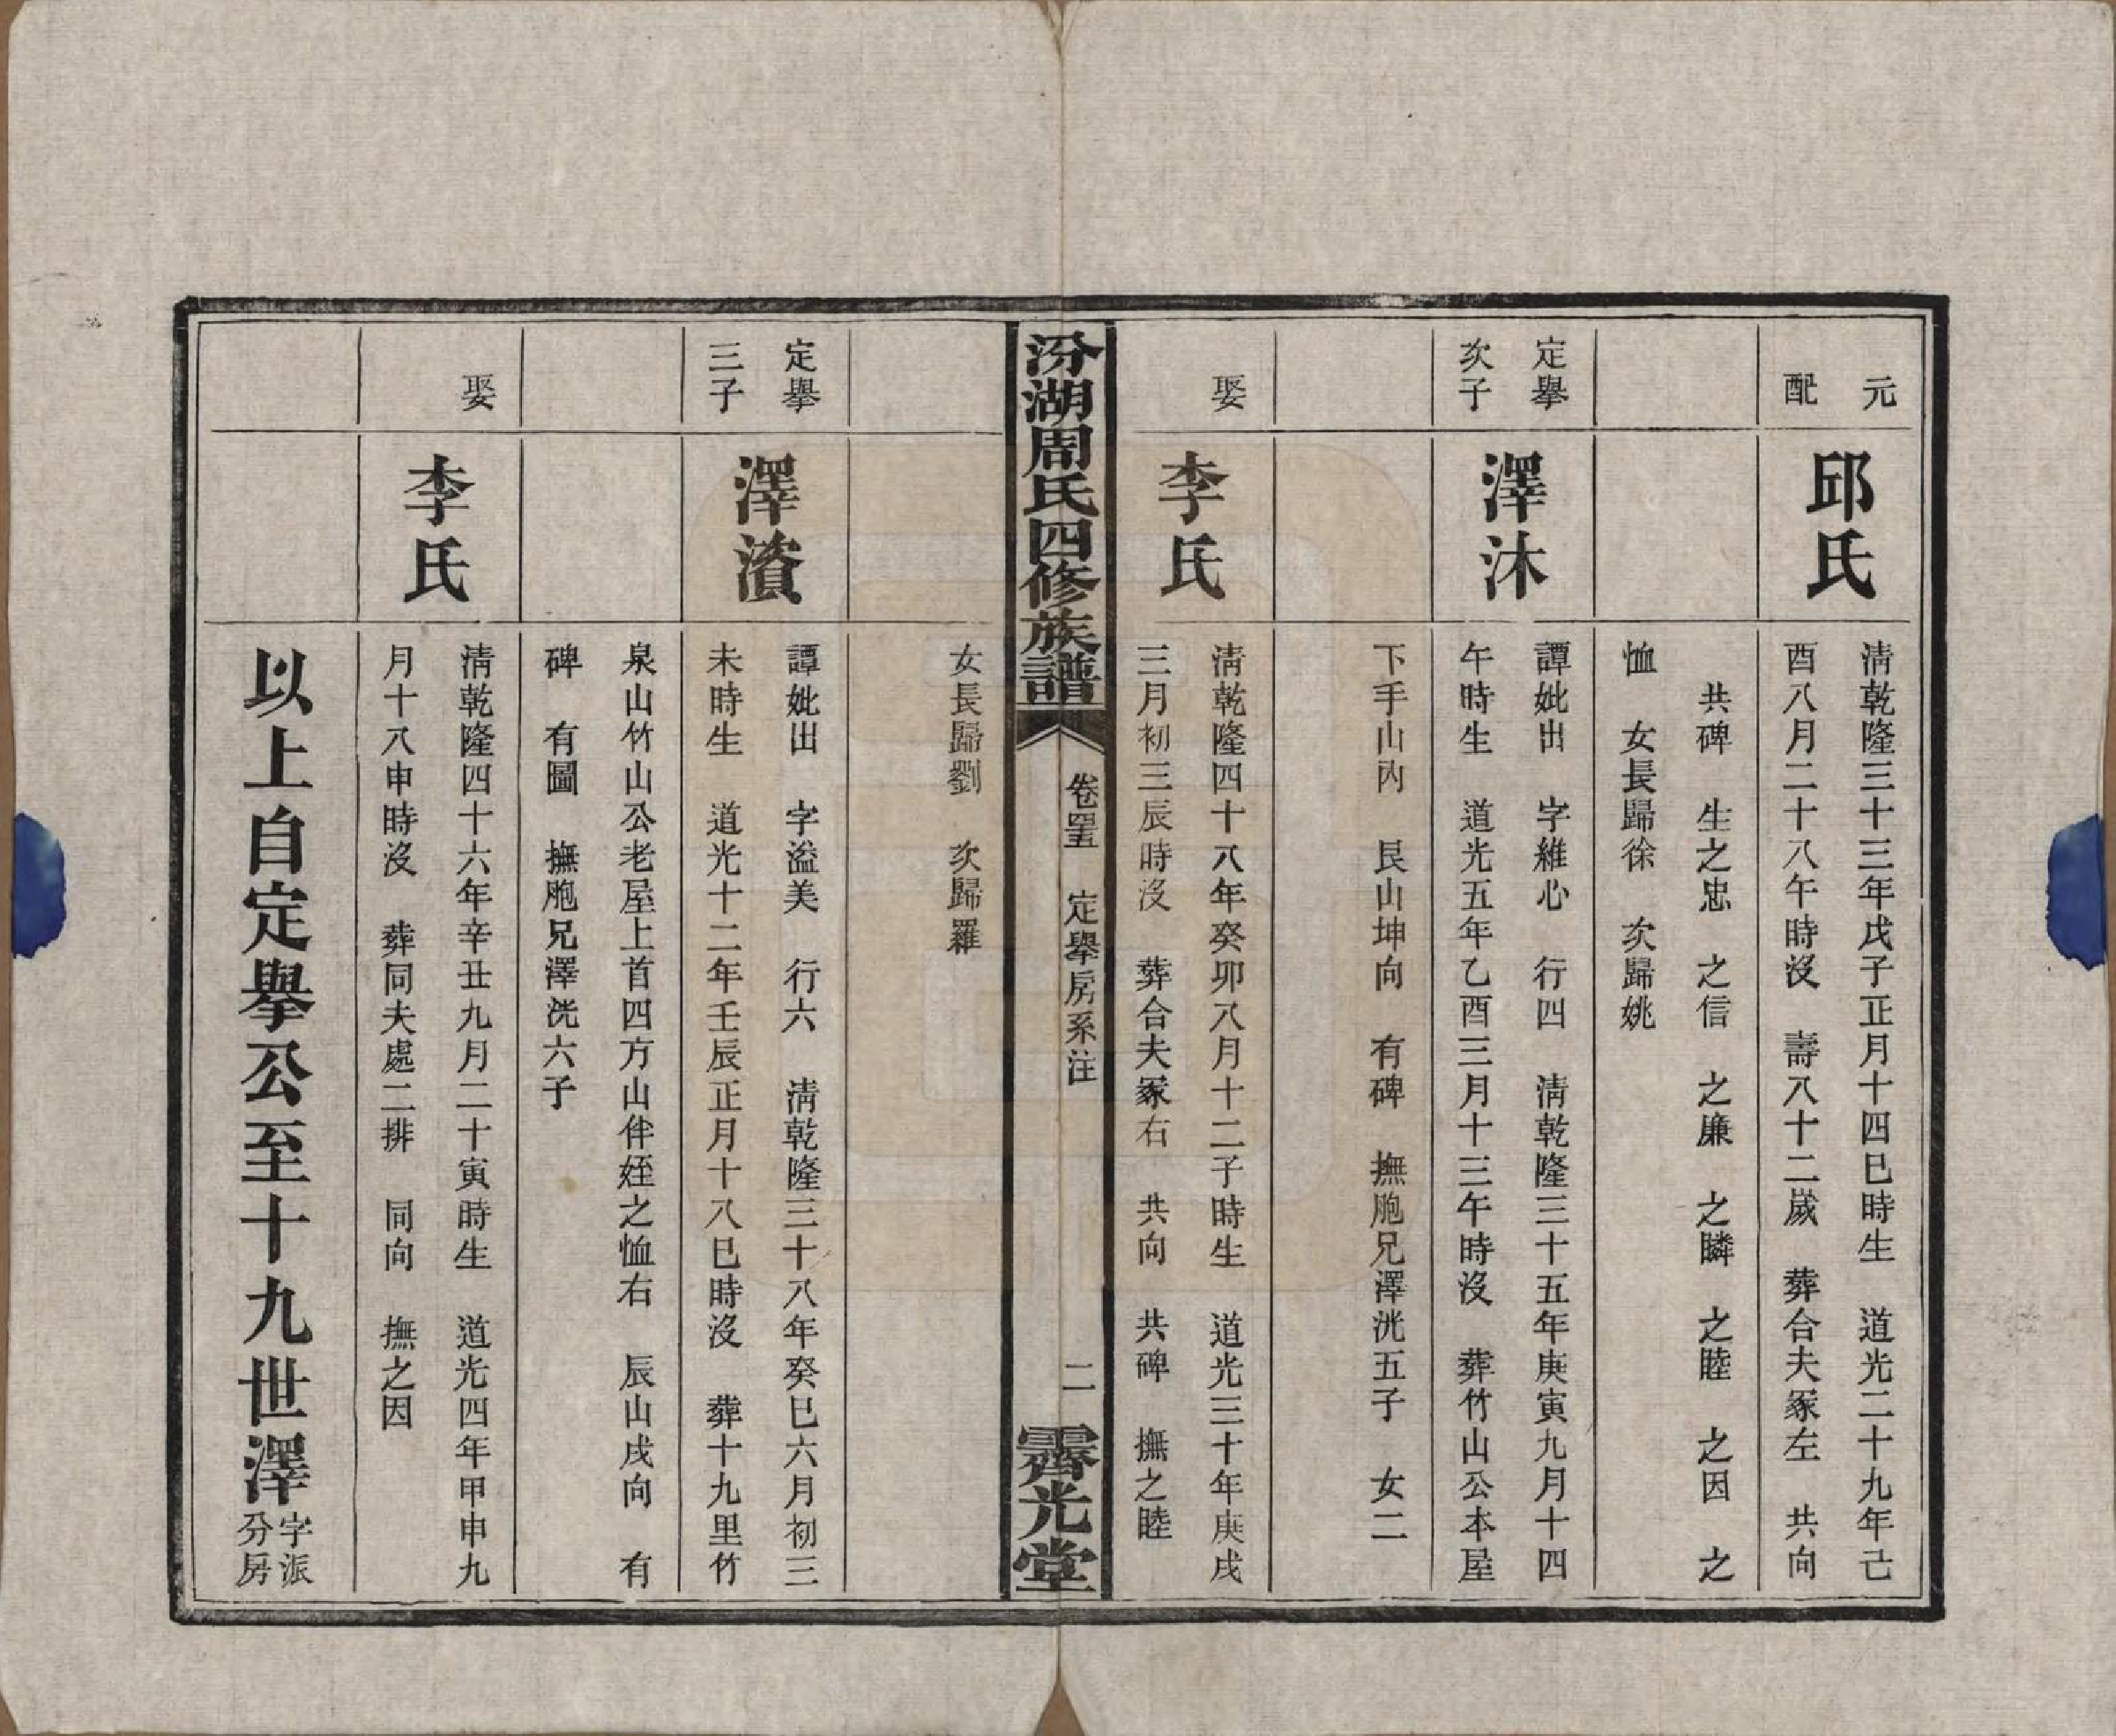 元
配
邱氏
淸乾隆三十三年戊子正月十四巳時生　道光二十九年己
酉八月二十八午時沒　壽八十二歲　葬合夫冢左　共向
共碑　生之忠　之信　之廉　之瞵　之睦　之因　之
恤　女長歸徐　次歸姚
定擧
次子
澤沐
譚妣出　字維心　行四　淸乾隆三十五年庚寅九月十四
午時生　道光五年乙酉三月十三午時沒　葬竹山公本屋
下手山內　艮山坤向　有碑　撫胞兄澤洸五子　女二
娶
李氏
淸乾隆四十八年癸卯八月十二子時生　道光三十年庚戌
三月初三辰時沒　葬合夫冢右　共向　共碑　撫之睦
汾湖周氏四修族譜
卷四五　定擧房系注
二
霽光堂
女長歸劉　次歸羅
定擧
三子
澤濱
譚妣出　字溢美　行六　淸乾隆三十八年癸巳六月初三
未時生　道光十二年壬辰正月十八巳時沒　葬十九里竹
泉山竹山公老屋上首四方山伴姪之恤右　辰山戌向　有
碑　有圖　撫胞兄澤洸六子
娶
李氏
淸乾隆四十六年辛丑九月二十寅時生　道光四年甲申九
月十八申時沒　葬同夫處二排　同向　撫之因
以上自定擧公至十九世澤字派分房